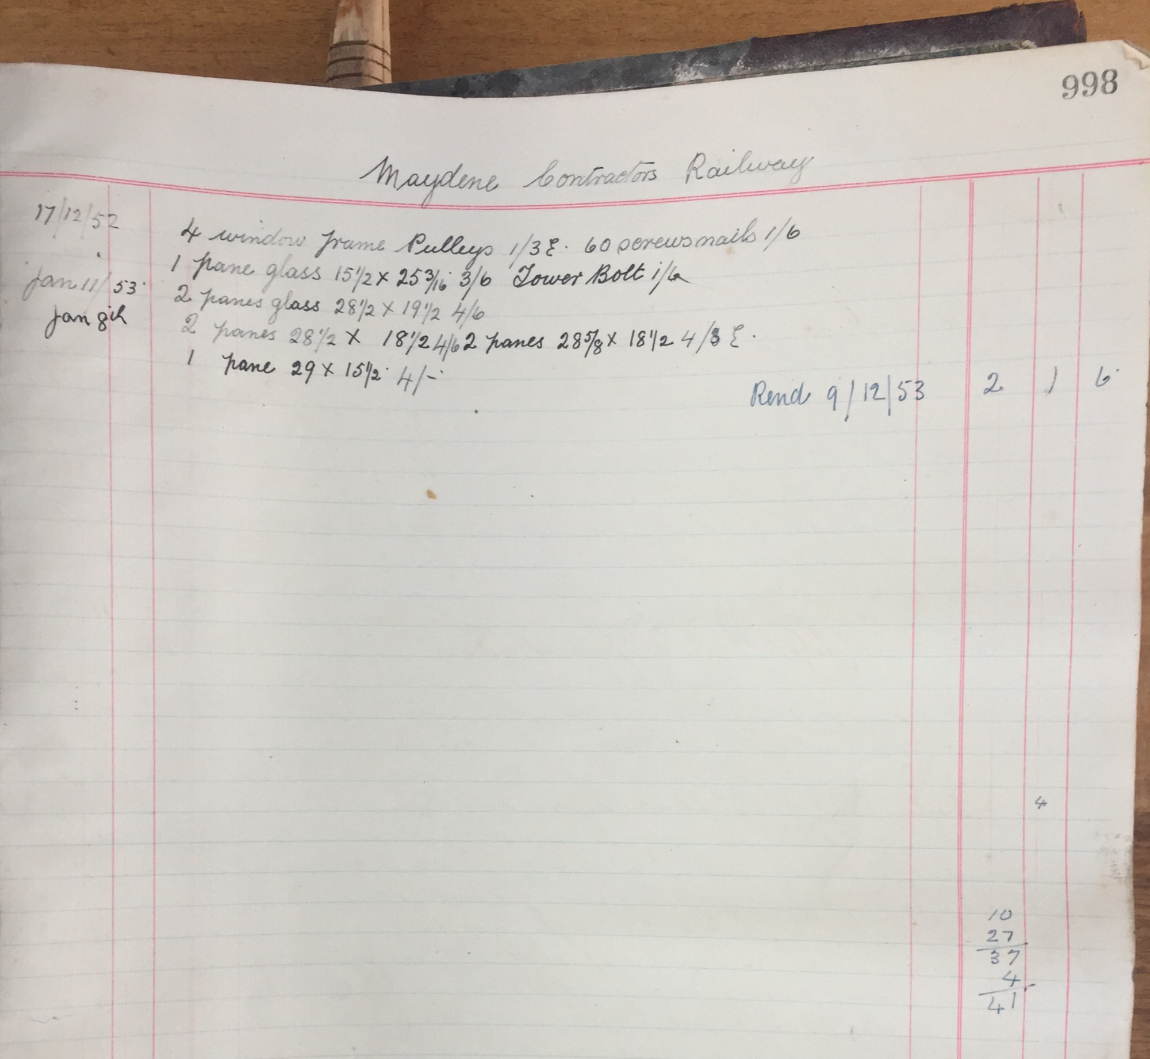 998
Maydene Contractors Railway
17/12/52 4 window frame Pulleys 1/3 £. 60 screwsnails 1/6
Jan 11/53 1 pane glass 15 1/2 x 25 3/16 3/6 Tower Bolt 1/6
Jan 8th 2 panes glass 28 1/2 x 19 1/2 4/6
2 panes 28 1/2 x 18 1/2 4/6 2 panes 28 5/8 x 18 1/2 4/3 £.
1 pane 29 x 15 1/2 4/-
Rend 9/12/53 2 1 6
4
10
27
37
4
41